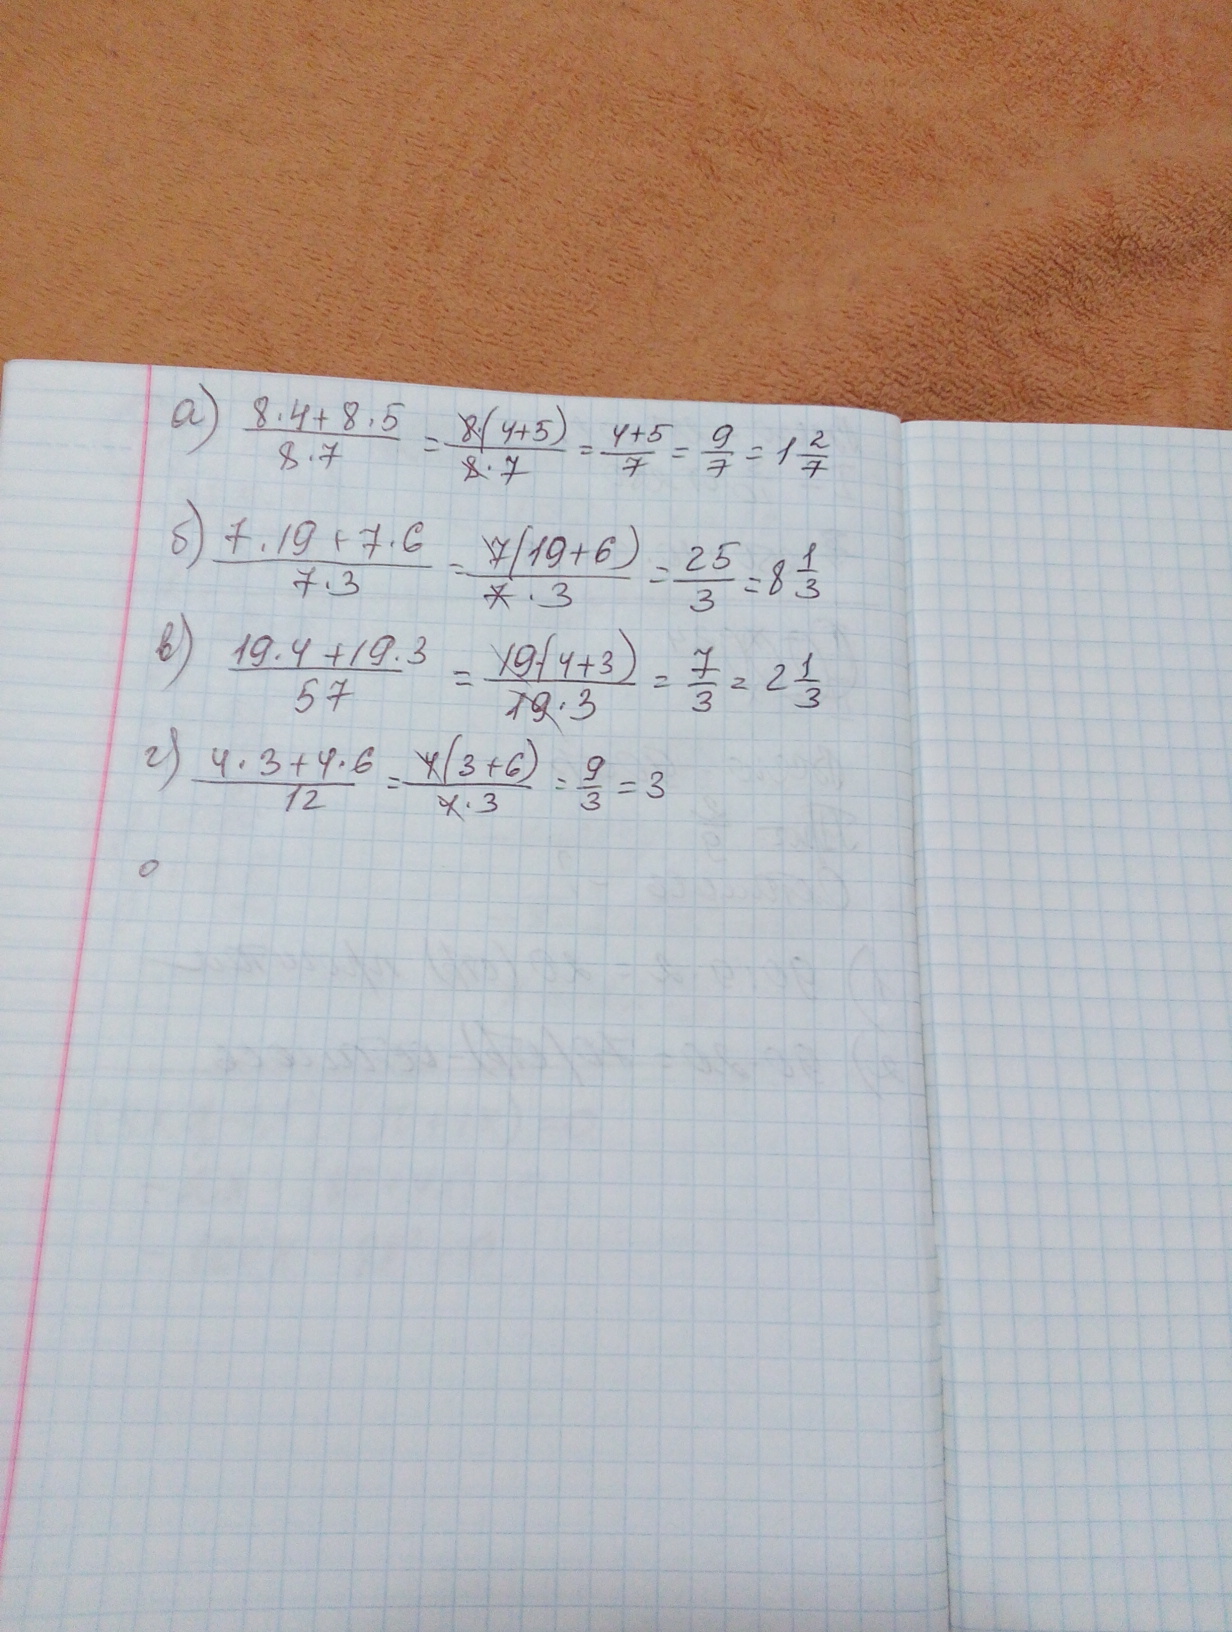 а) (8·4+8·5)/(8·7) = (8·(4+5))/(8·7) = (4+5)/7 = 9/7 = 1 2/7
б) (7·19+7·6)/(7·3) = (7(19+6))/(7·3) = 25/3 = 8 1/3
в) (19·4+19·3)/57 = (19·(4+3))/(19·3) = 7/3 = 2 1/3
г) (4·3+4·6)/12 = (4(3+6))/(4·3) = 9/3 = 3